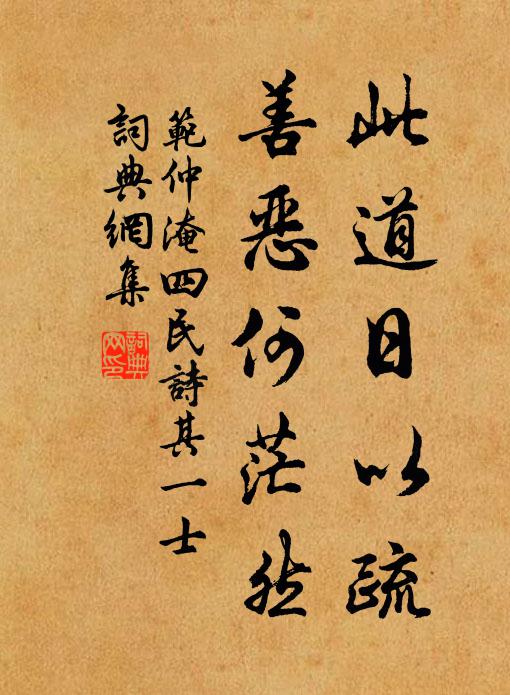 此道日以疏
善惡何茫然
範仲淹四民詩其一士
詞典網集
詞典
网印